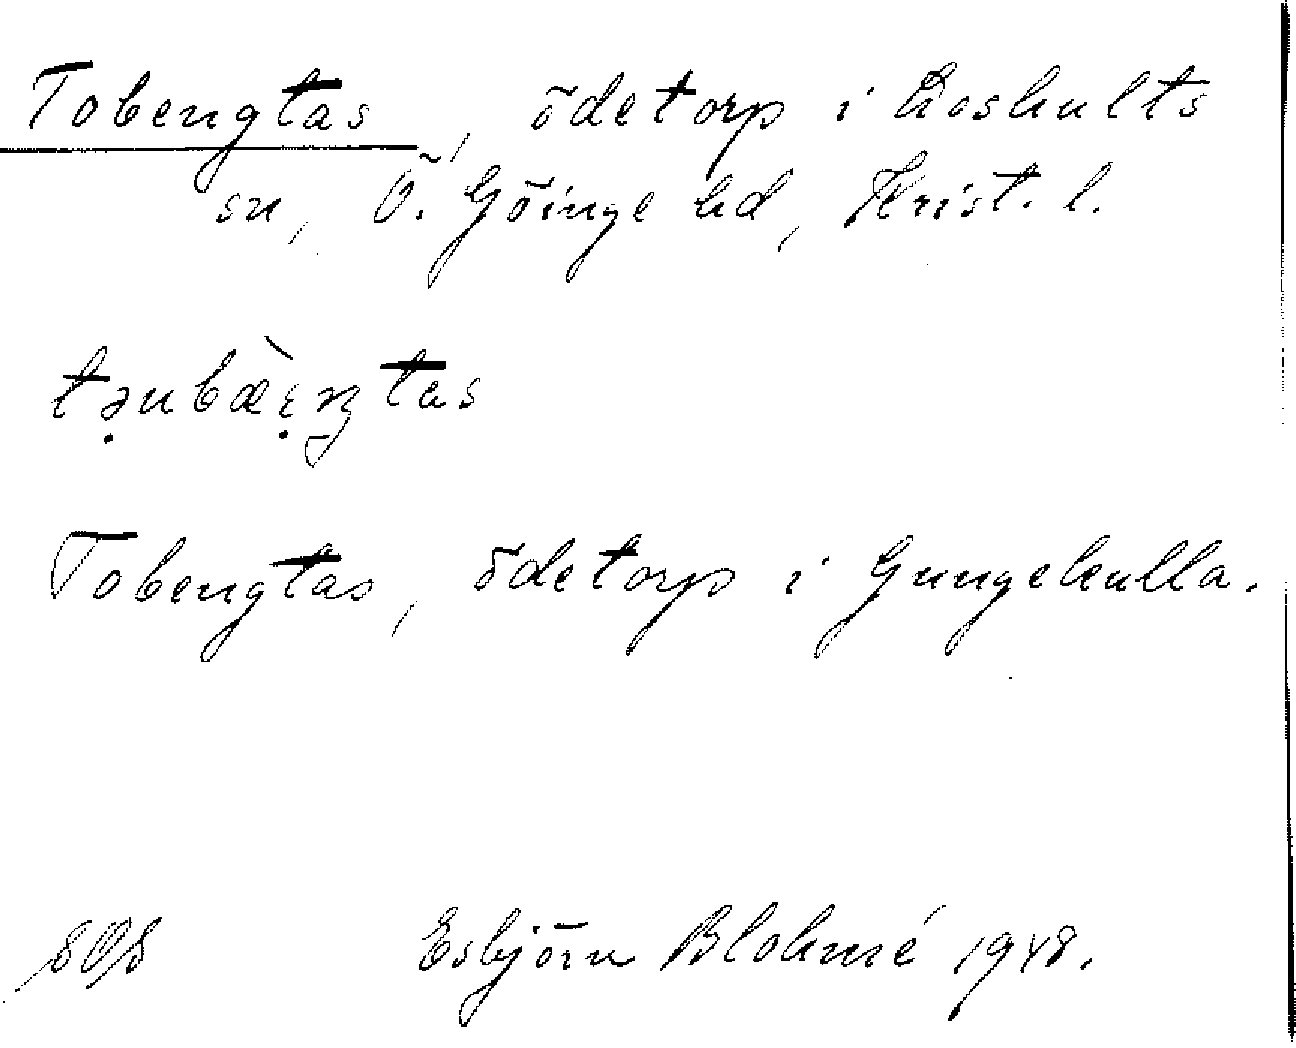 Tobengtas, ödetorp i Loshults
sn, Ö. Göinge hd, Krist. l.
tə̣ubæ̀ε̣ŋtas
Tobengtas, ödetorp i Gungekulla.
Esbjörn Blohmé 1948.